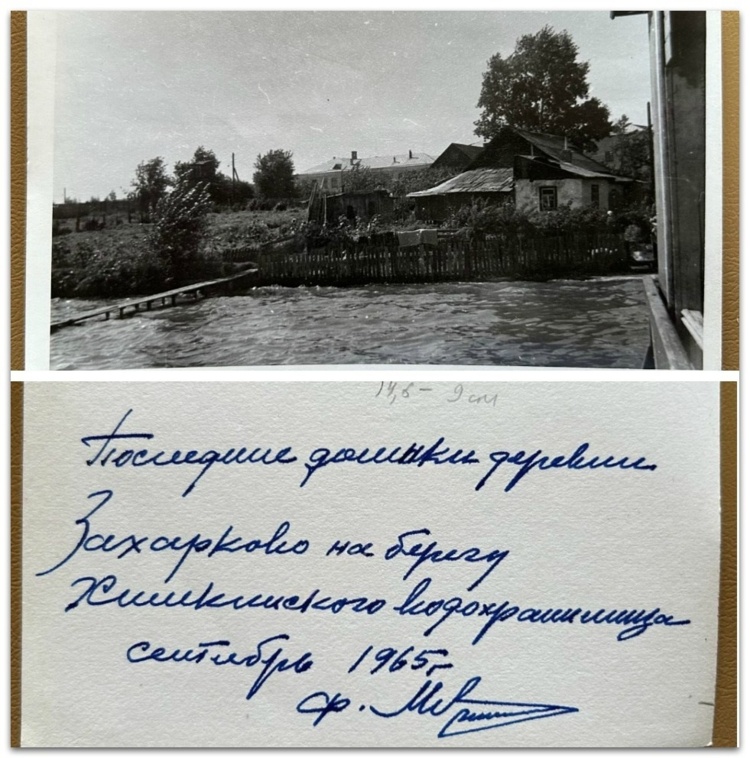 14,5 - 9 см
Последние домики деревни
Захарково на берегу
Химкинского водохранилища
сентябрь 1965г.
ф.